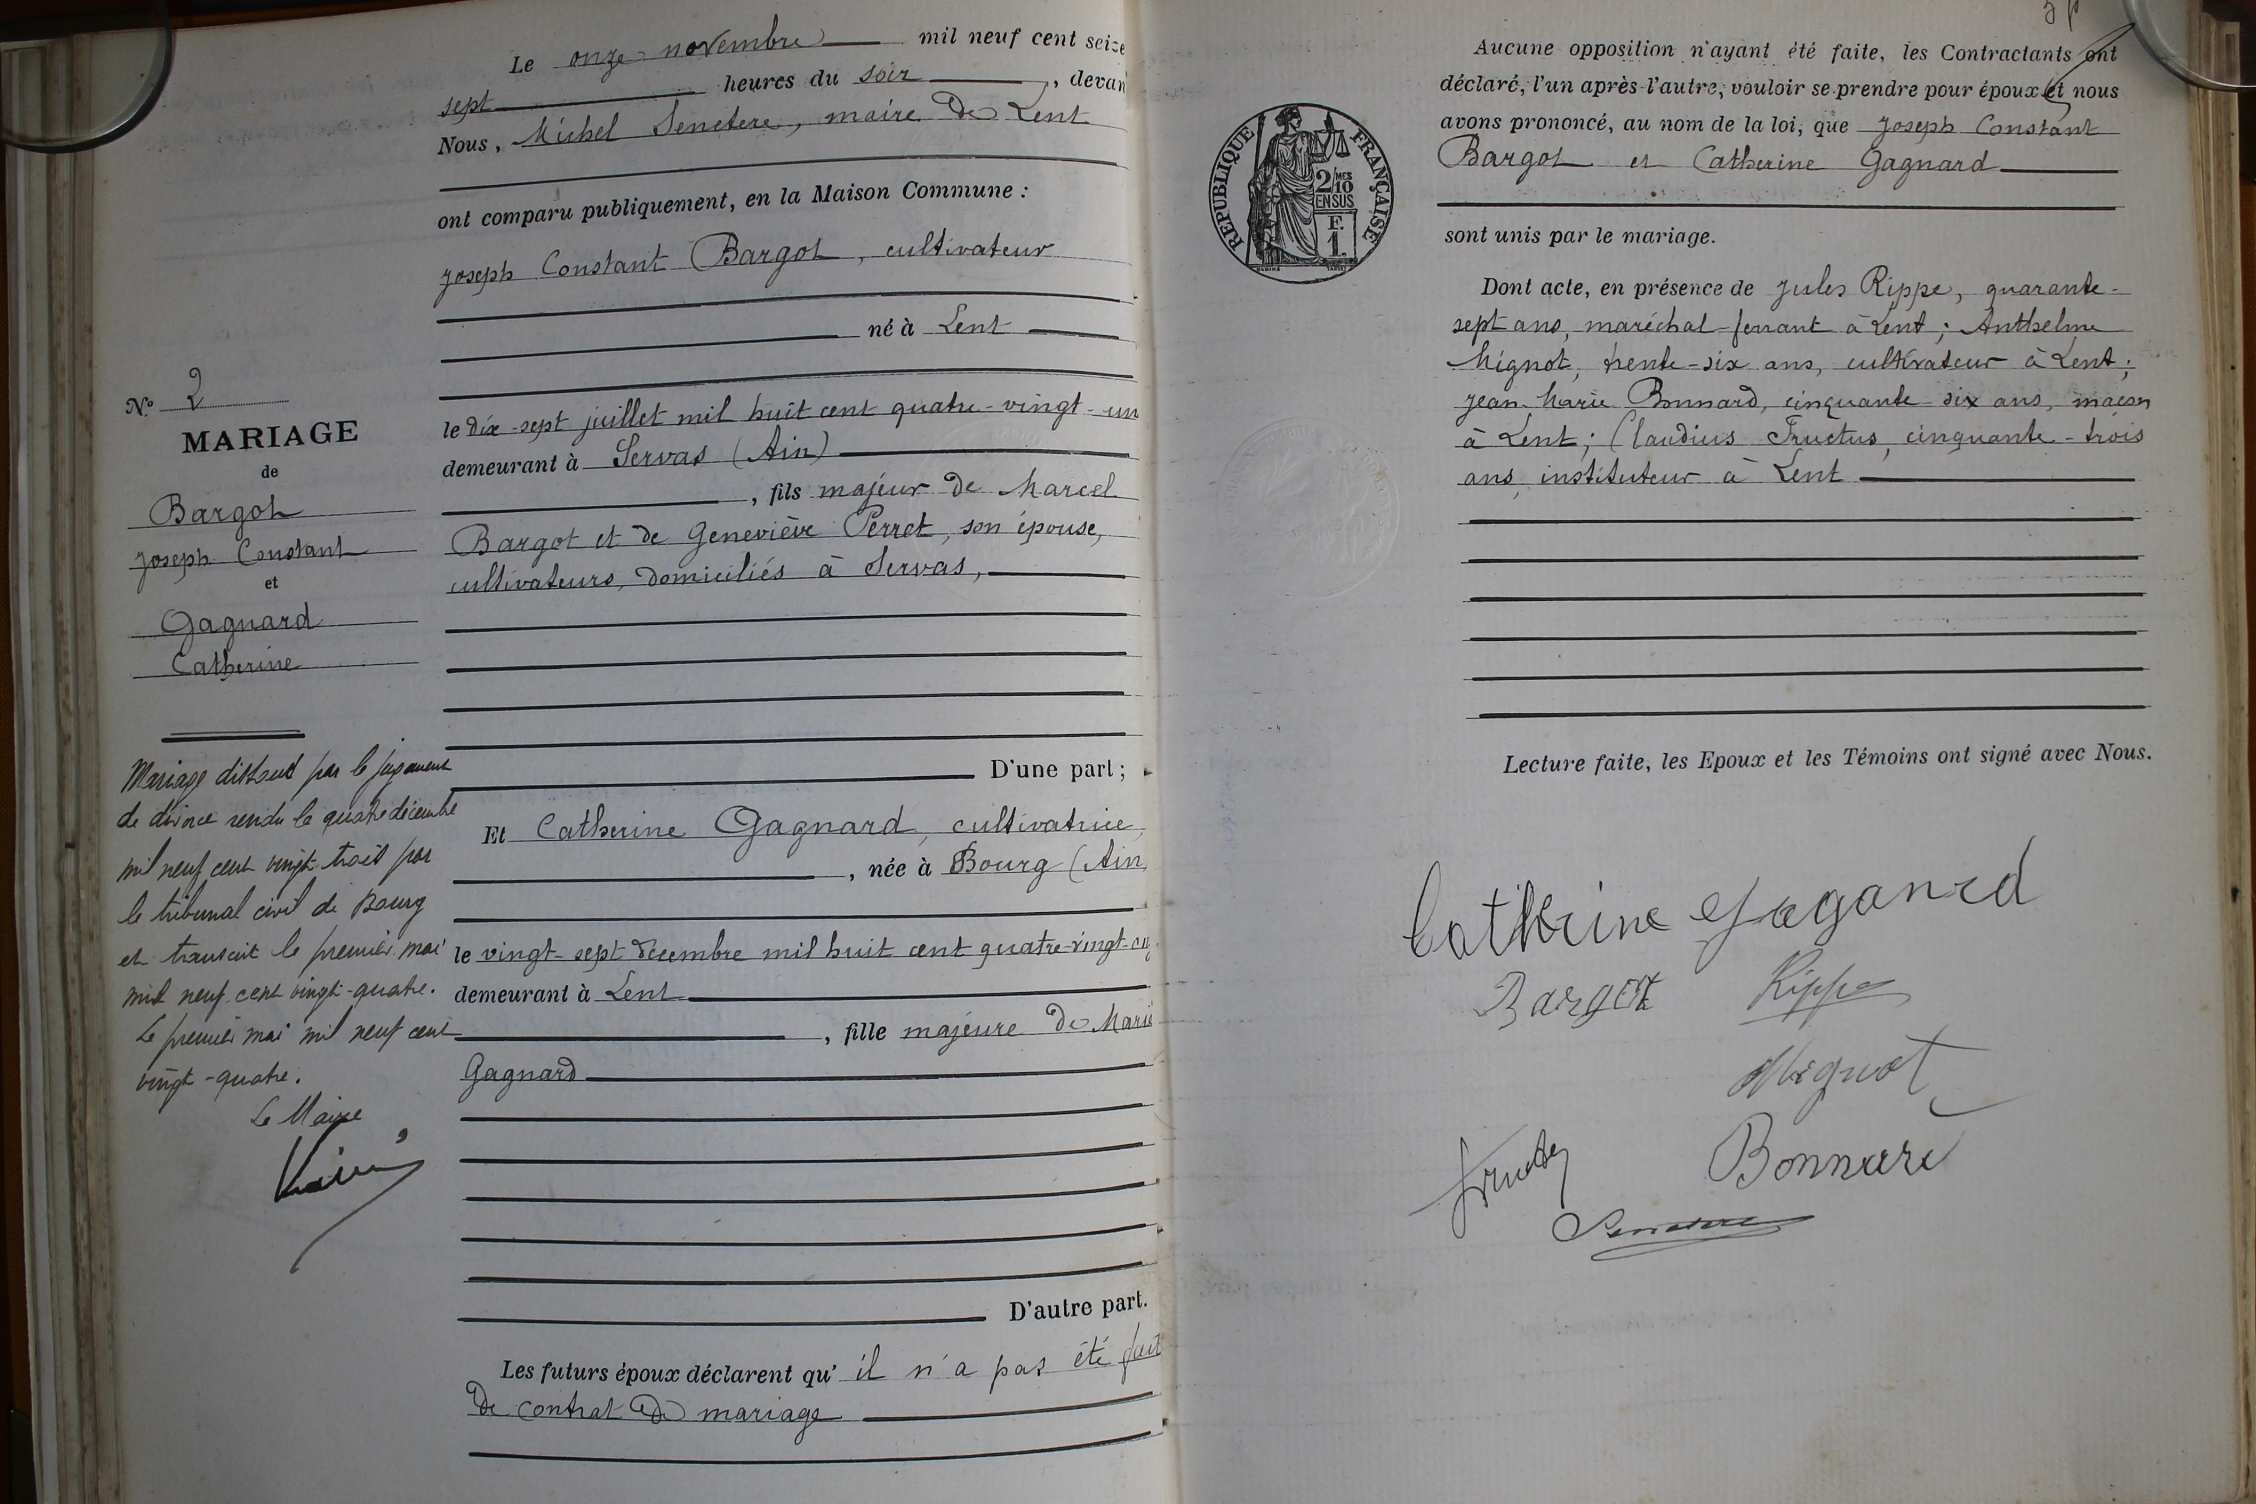 Le onze novembre mil neuf cent seize
sept heures du soir, devan
Nous, Michel Senetere, maire de Lent
ont comparu publiquement, en la Maison Commune :
Joseph Constant Bargot, cultivateur
né à Lent
le dix-sept juillet mil huit cent quatre-vingt-un
demeurant à Servas (Ain)
, fils majeur de Marcel
Bargot et de Geneviève Perret, son épouse,
cultivateurs, domiciliés à Servas,
D'une part ;
Et Catherine Gagnard, cultivatrice,
, née à Bourg (Ain
le vingt-sept décembre mil huit cent quatre-vingt-cinq
demeurant à Lent
, fille majeure de Marie
Gagnard
D'autre part.
Les futurs époux déclarent qu'il n'a pas été fait
de contrat de mariage
N.º 2
MARIAGE
de
Bargot
Joseph Constant
et
Gagnard
Catherine
Mariage dissout par le jugement
de divorce rendu le quatre décembre
mil neuf cent vingt-trois par
le tribunal civil de Bourg
et transcrit le premier mai
mil neuf cent vingt-quatre.
Le premier mai mil neuf cent
vingt-quatre.
Le Maire
Aucune opposition n'ayant été faite, les Contractants ont
déclaré, l'un après l'autre, vouloir se prendre pour époux et nous
avons prononcé, au nom de la loi, que Joseph Constant
Bargot et Catherine Gagnard
sont unis par le mariage.
Dont acte, en présence de Jules Rippe, quarante-
sept ans, maréchal-ferrant à Lent ; Anthelme
Mignot, trente-six ans, cultivateur à Lent ;
Jean-Marie Bonnard, cinquante-six ans, maçon
à Lent ; Claudius Fructus, cinquante-trois
ans, instituteur à Lent
Lecture faite, les Epoux et les Témoins ont signé avec Nous.
Catherine Gaganrd
Bargot Rippe
Mignot
Fructus Bonnard
Senetere
RÉPUBLIQUE FRANÇAISE
2/10 MES
EN SUS
F.
1.